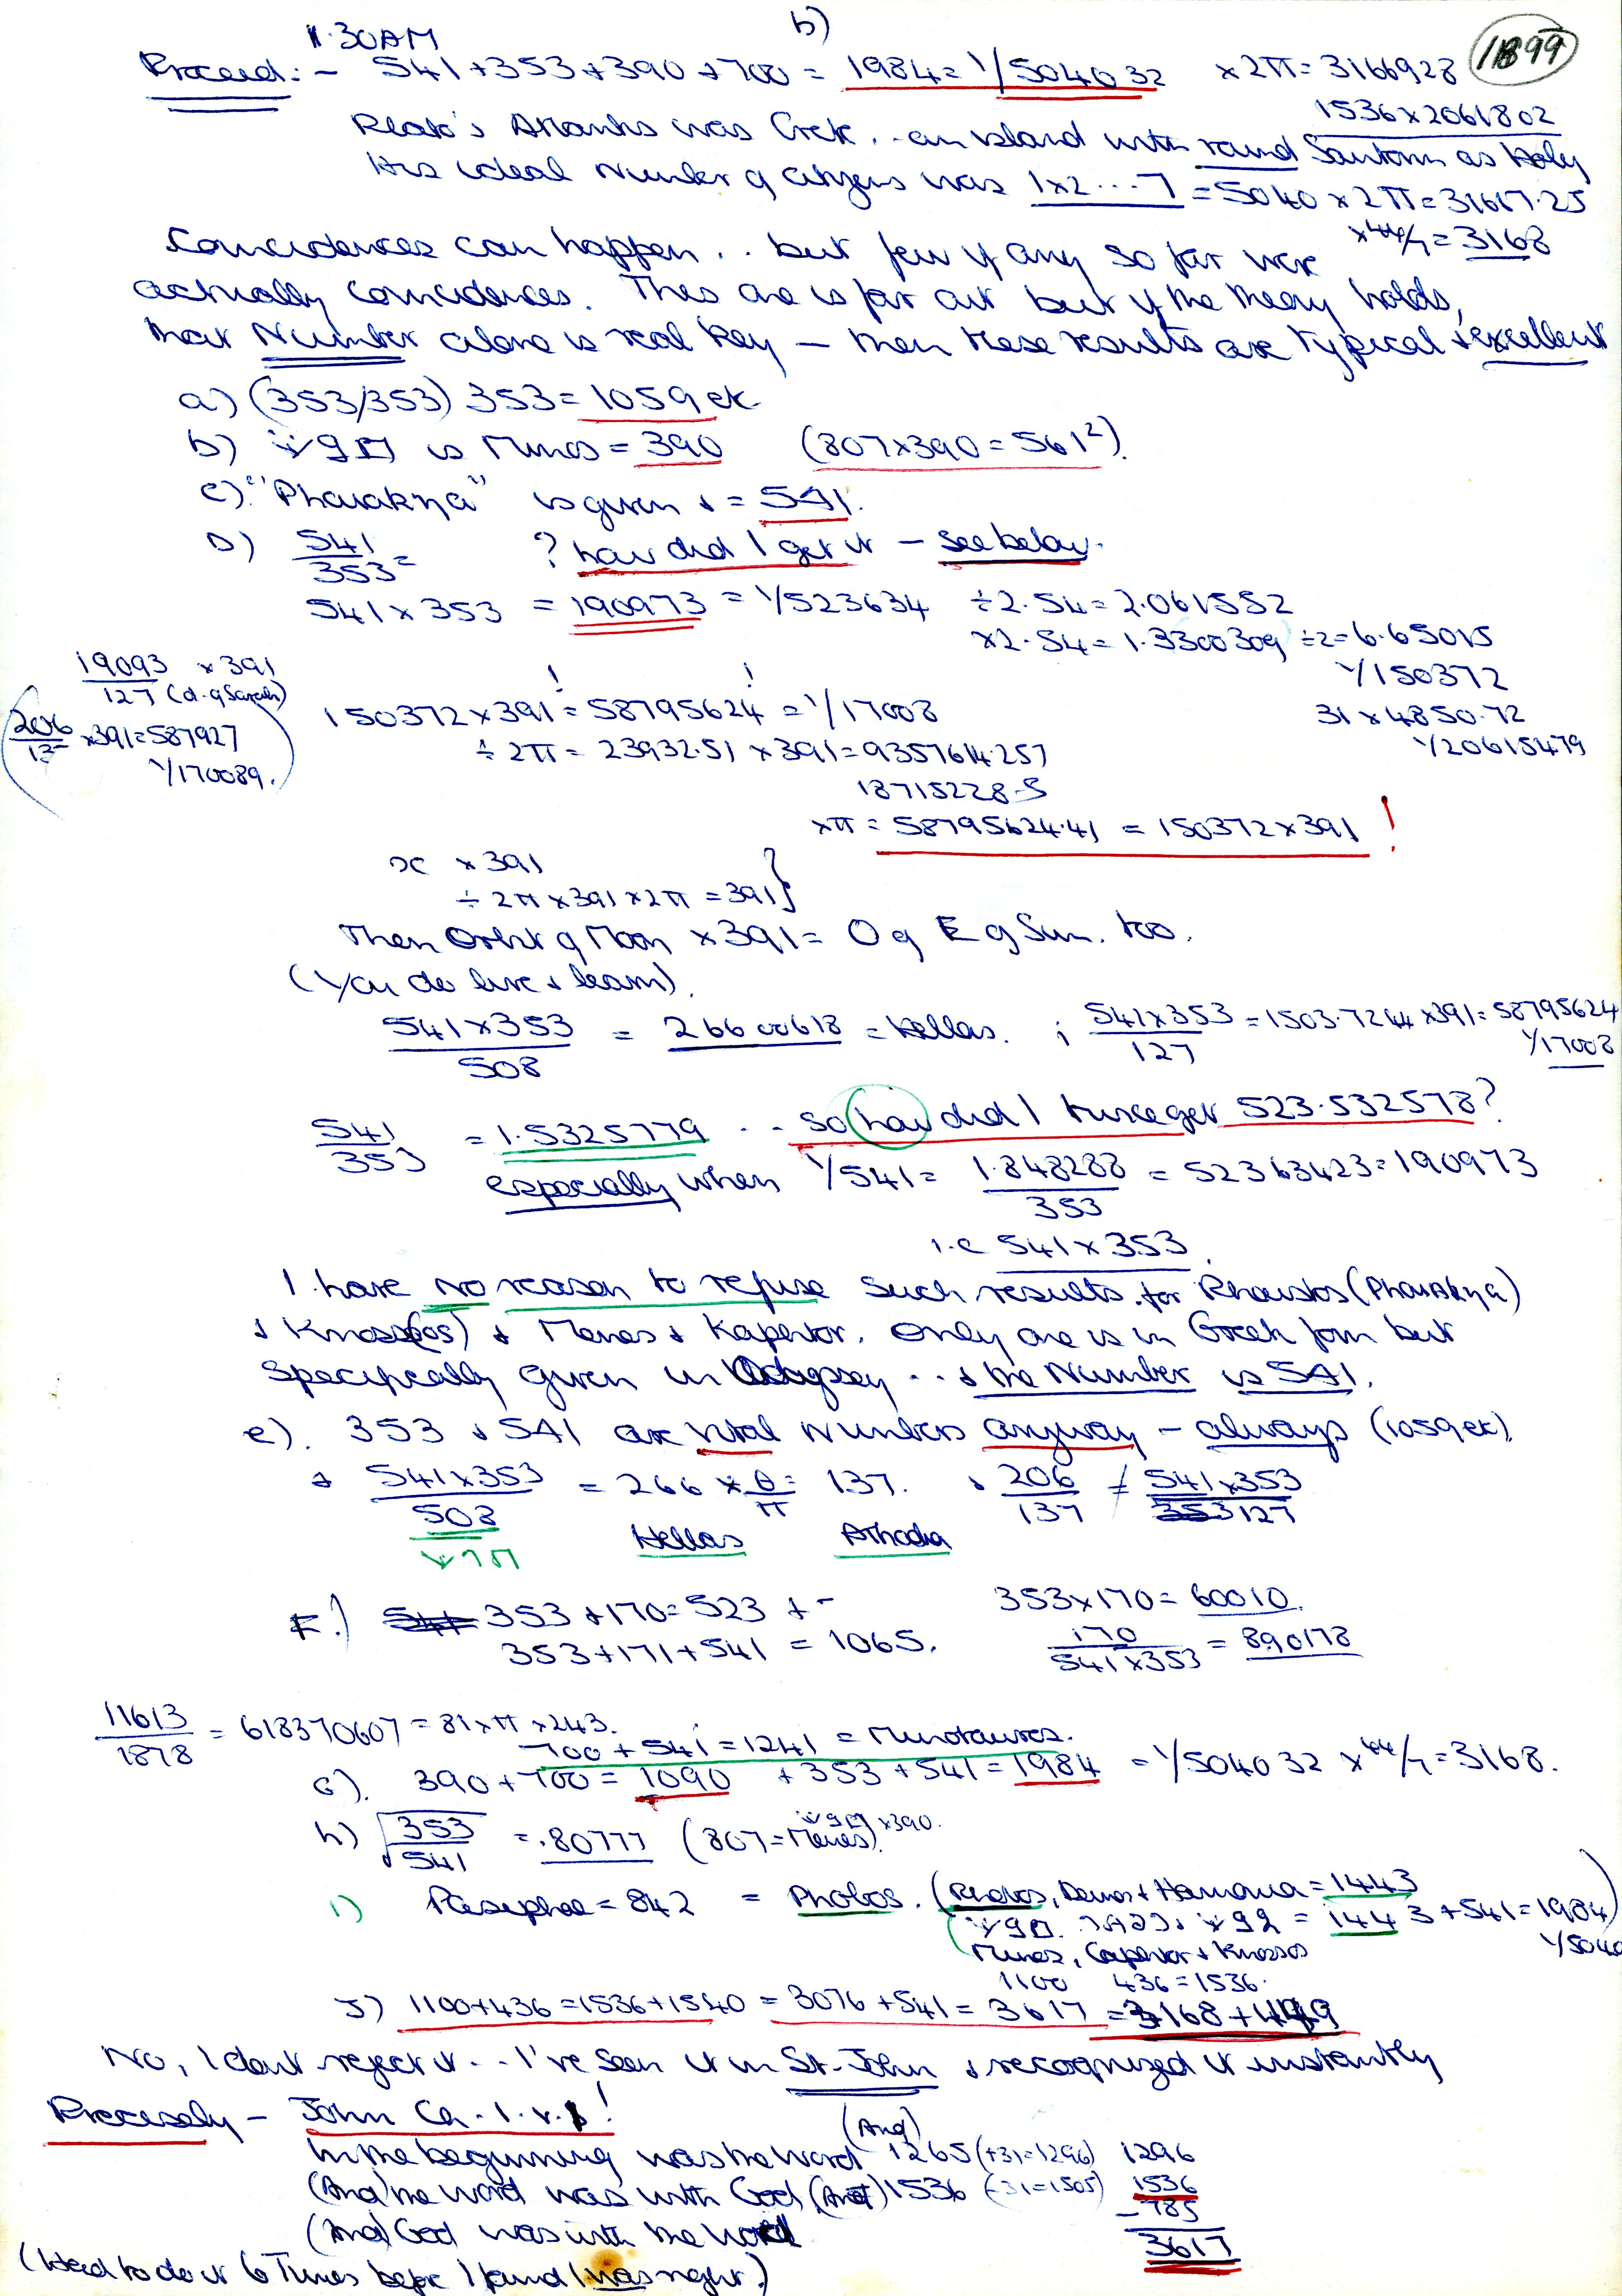 b)
1.30AM
Proceed:- 541+353+390+700 = 1984 = 1/504032 ×2π = 3166928 1899
1536×2061802
Plato's Atlantis was Crete .. an island with round Santorin as Holy
His ideal number of citizens was 1×2...7 = 5040×2π=31667.25
×44/7 = 3168
Coincidences can happen .. but few if any so far were
actually coincidences. This one is far out but if the theory holds,
that Number alone is real key – then these results are typical + excellent
a) (353/353) 353 = 1059 etc
b) is Minos = 390 (807×390 = 561²).
c) "Phaiakya" is given + = 541.
D) 541/353 = ? how did I get it – see below.
541 × 353 = 190973 = 1/523634 ÷2.54 = 2.061552
×2.54 = 1.3300309 ÷2= 6.65015
1/150372
19093/127 ×391 (d. of Sarah)
206/137 ×391=587927
1/170089.
150372×391 = 58795624 = 1/17008
31 × 4850.72
1/20615479
÷ 2π = 23932.51 ×391 = 9357614.257
18715228.5
×π = 58795624.41 = 150372×391 !
x ×391
÷ 2π ×391×2π = 391}
Then Orbit of Moon ×391 = O of E of Sun. too.
(You do live + learn).
541×353/508 = 26600618 = Hellas. ; 541×353/127 = 1503.7244 ×391=58795624
1/17008
541/353 = 1.5325779 .. so how did I twice get 523.532578?
especially when 1/541 = 1.848288/353 = 52363423 = 190973
i.e 541×353
I have no reason to refuse such results. for Phaistos (Phaiakya)
+ Knoss(os) + Menes + Kapehtor. Only one is in Greek form but
specifically given in Odyssey .. + the Number is 541.
e). 353 + 541 are vital numbers anyway – always (1059 etc).
+ 541×353/508 = 266 × θ/π = 137. + 206/137 ≠ 541×353/127
Hellas
F.) 353+170=523 + – 353×170=60010.
353+171+541 = 1065. 170/541×353 = 890178
11613/1878 = 618370607 = 81×π×243.
700+541=1241 = Minotauros.
G). 390+700=1090 +353+541=1984 = 1/504032 ×44/7=3168.
h) √353/541 = .80777 (807=Menes) ×390.
i) Pasiphae = 842 = Phobos. (Phobos, Deimos + Harmonia = 1443
= 1443+541=1984)
1/5040
Minos, Capehtor + Knossos
1100 436=1536.
J) 1100+436=1536+1540 = 3076+541 = 3617 = 3168+449
No, I don't reject it .. I've seen it in St. John + recognized it instantly
Precisely – John Ch. 1. v. 1!
In the beginning was the Word (And) 1265 (+31=1296) 1296
(And) the Word was with God (And) 1536 (-31=1505) 1536
(And) God was with the Word 785
3617
(Had to do it 6 Times before I found I was right.)